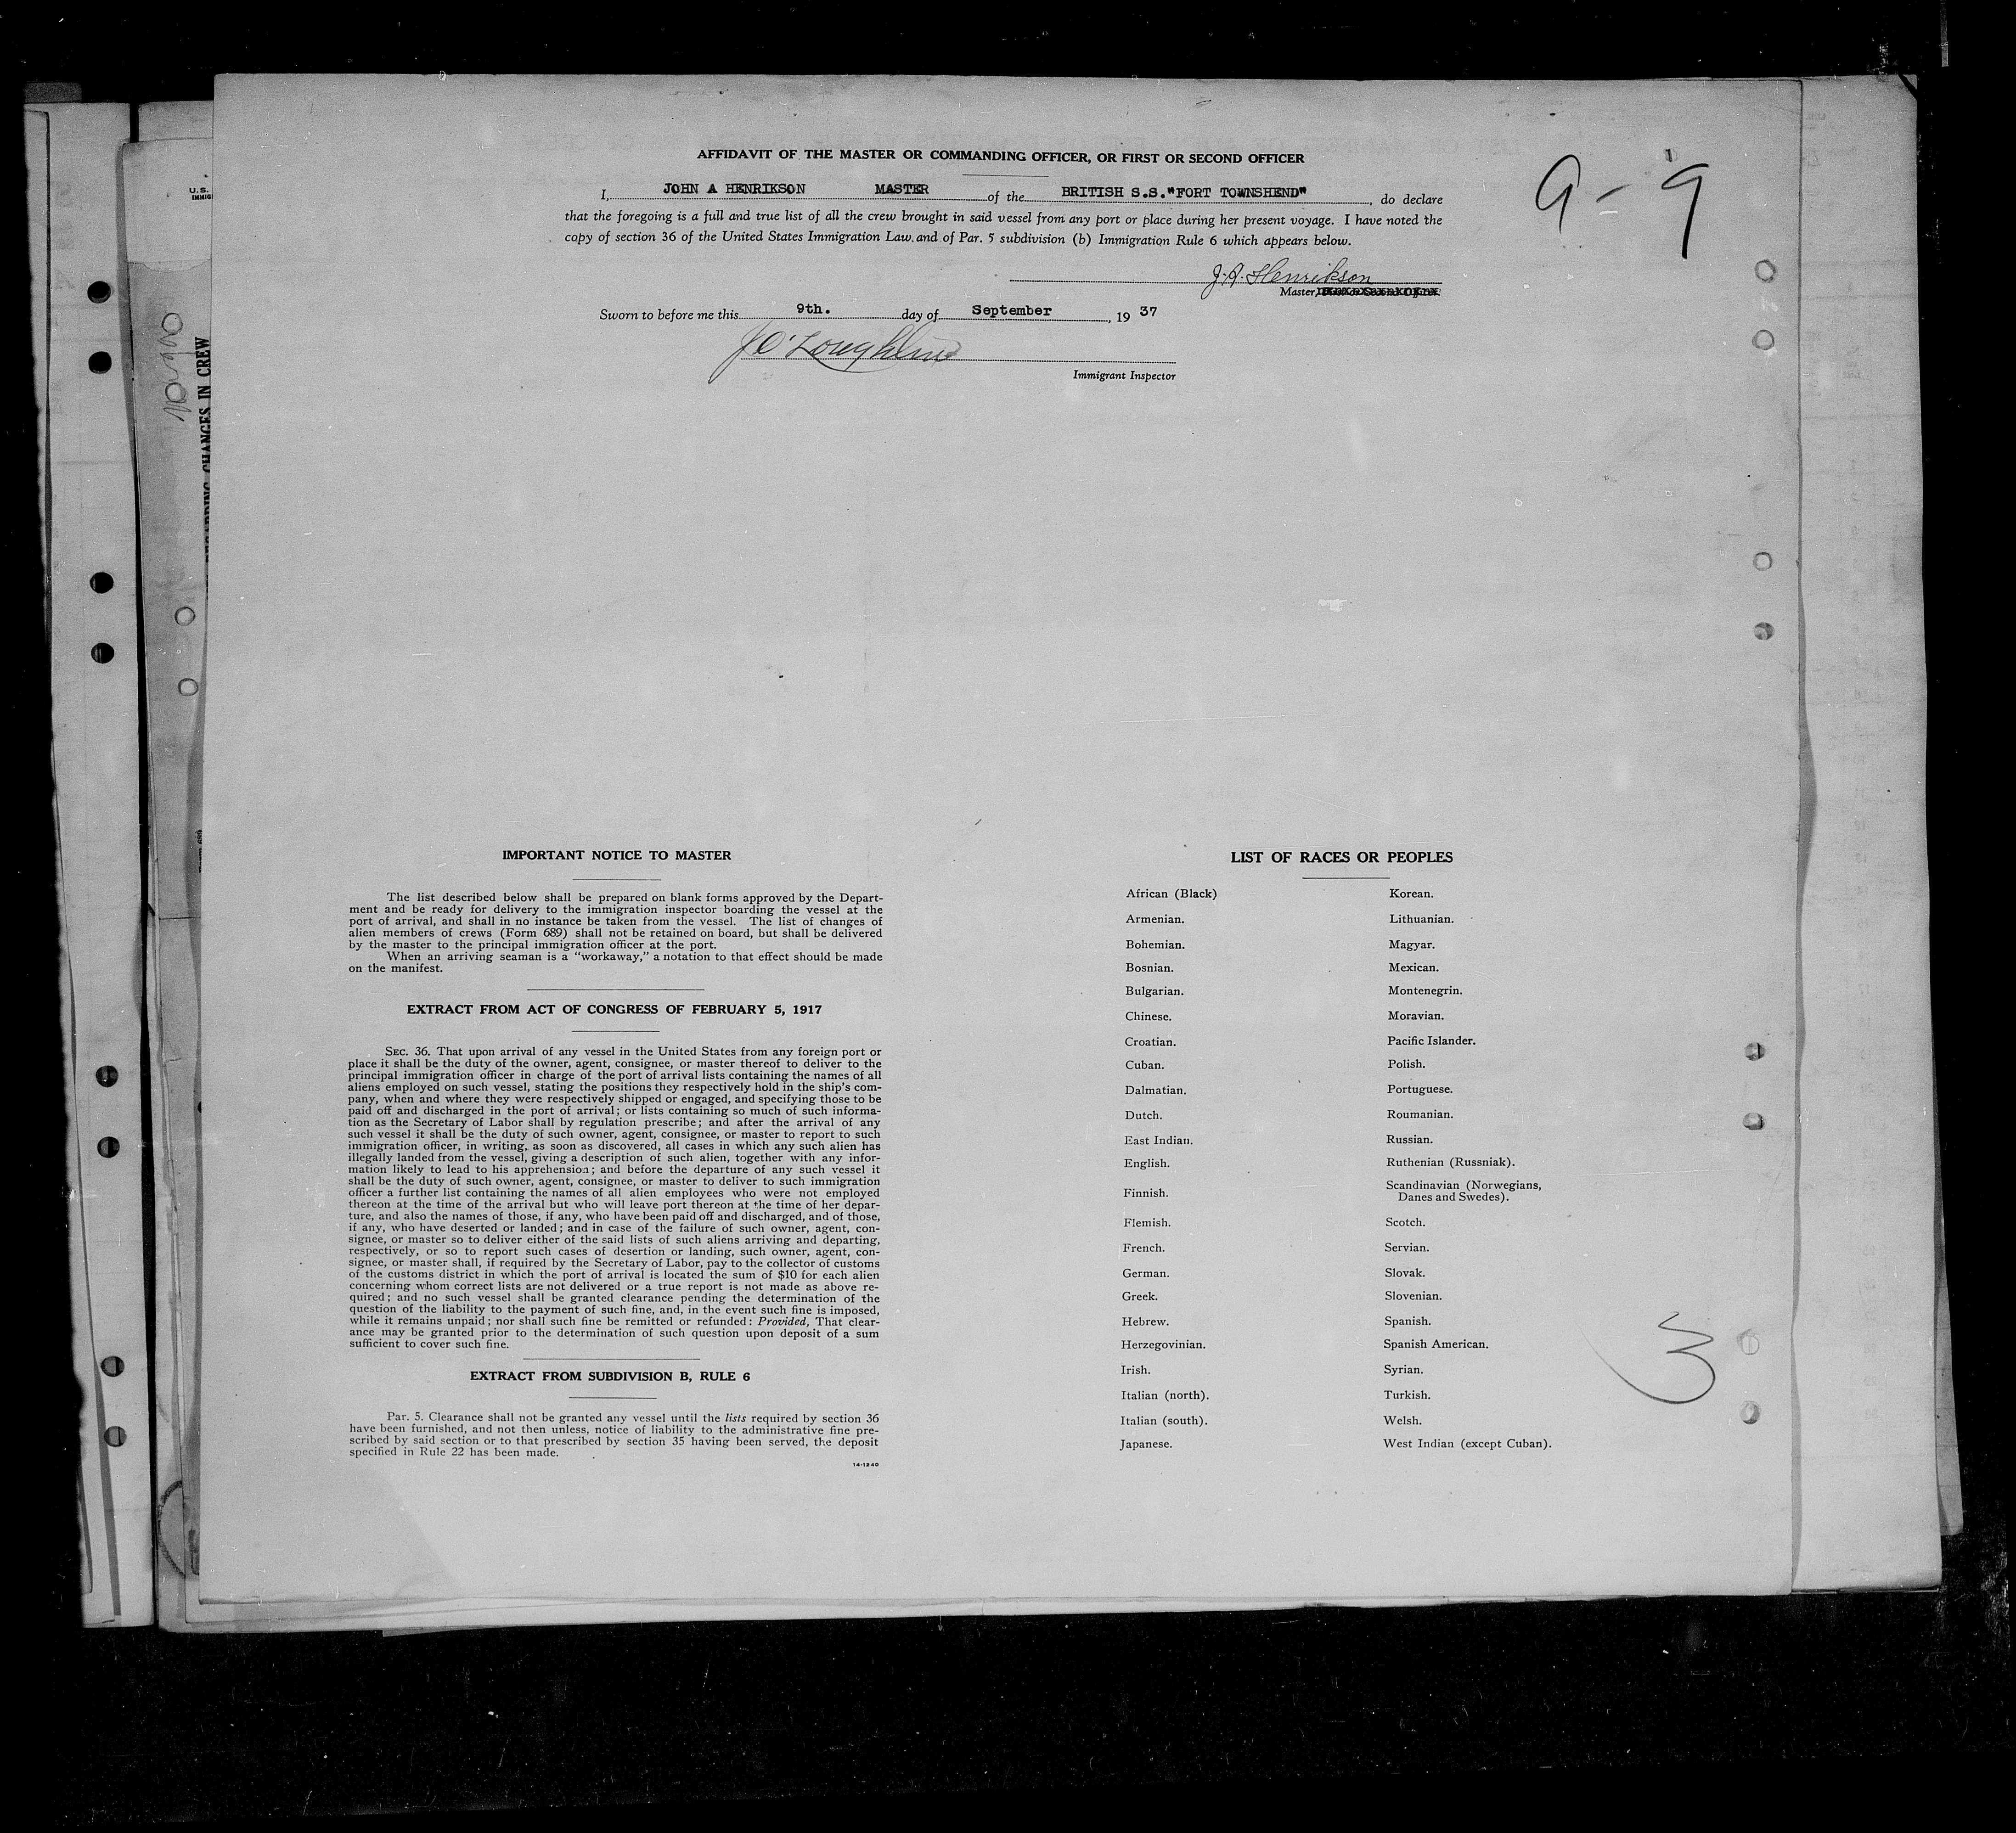 AFFIDAVIT OF THE MASTER OR COMMANDING OFFICER, OR FIRST OR SECOND OFFICER
9-9
I, JOHN A HENRIKSON MASTER of the BRITISH S.S."FORT TOWNSHEND", do declare
that the foregoing is a full and true list of all the crew brought in said vessel from any port or place during her present voyage. I have noted the
copy of section 36 of the United States Immigration Law and of Par. 5 subdivision (b) Immigration Rule 6 which appears below.
J. A. Henrikson
Master,
Sworn to before me this 9th. day of September, 19 37
J O'Loughlin
Immigrant Inspector
U.S.
IMMIG
CHANGES IN CREW
IMPORTANT NOTICE TO MASTER
The list described below shall be prepared on blank forms approved by the Depart-
ment and be ready for delivery to the immigration inspector boarding the vessel at the
port of arrival, and shall in no instance be taken from the vessel. The list of changes of
alien members of crews (Form 689) shall not be retained on board, but shall be delivered
by the master to the principal immigration officer at the port.
When an arriving seaman is a "workaway," a notation to that effect should be made
on the manifest.
EXTRACT FROM ACT OF CONGRESS OF FEBRUARY 5, 1917
SEC. 36. That upon arrival of any vessel in the United States from any foreign port or
place it shall be the duty of the owner, agent, consignee, or master thereof to deliver to the
principal immigration officer in charge of the port of arrival lists containing the names of all
aliens employed on such vessel, stating the positions they respectively hold in the ship's com-
pany, when and where they were respectively shipped or engaged, and specifying those to be
paid off and discharged in the port of arrival; or lists containing so much of such informa-
tion as the Secretary of Labor shall by regulation prescribe; and after the arrival of any
such vessel it shall be the duty of such owner, agent, consignee, or master to report to such
immigration officer, in writing, as soon as discovered, all cases in which any such alien has
illegally landed from the vessel, giving a description of such alien, together with any infor-
mation likely to lead to his apprehension; and before the departure of any such vessel it
shall be the duty of such owner, agent, consignee, or master to deliver to such immigration
officer a further list containing the names of all alien employees who were not employed
thereon at the time of the arrival but who will leave port thereon at the time of her depar-
ture, and also the names of those, if any, who have been paid off and discharged, and of those,
if any, who have deserted or landed; and in case of the failure of such owner, agent, con-
signee, or master so to deliver either of the said lists of such aliens arriving and departing,
respectively, or so to report such cases of desertion or landing, such owner, agent, con-
signee, or master shall, if required by the Secretary of Labor, pay to the collector of customs
of the customs district in which the port of arrival is located the sum of $10 for each alien
concerning whom correct lists are not delivered or a true report is not made as above re-
quired; and no such vessel shall be granted clearance pending the determination of the
question of the liability to the payment of such fine, and, in the event such fine is imposed,
while it remains unpaid; nor shall such fine be remitted or refunded: Provided, That clear-
ance may be granted prior to the determination of such question upon deposit of a sum
sufficient to cover such fine.
EXTRACT FROM SUBDIVISION B, RULE 6
Par. 5. Clearance shall not be granted any vessel until the lists required by section 36
have been furnished, and not then unless, notice of liability to the administrative fine pre-
scribed by said section or to that prescribed by section 35 having been served, the deposit
specified in Rule 22 has been made.
14-1240
LIST OF RACES OR PEOPLES
African (Black)
Armenian.
Bohemian.
Bosnian.
Bulgarian.
Chinese.
Croatian.
Cuban.
Dalmatian.
Dutch.
East Indian.
English.
Finnish.
Flemish.
French.
German.
Greek.
Hebrew.
Herzegovinian.
Irish.
Italian (north).
Italian (south).
Japanese.
Korean.
Lithuanian.
Magyar.
Mexican.
Montenegrin.
Moravian.
Pacific Islander.
Polish.
Portuguese.
Roumanian.
Russian.
Ruthenian (Russniak).
Scandinavian (Norwegians,
Danes and Swedes).
Scotch.
Servian.
Slovak.
Slovenian.
Spanish.
Spanish American.
Syrian.
Turkish.
Welsh.
West Indian (except Cuban).
3